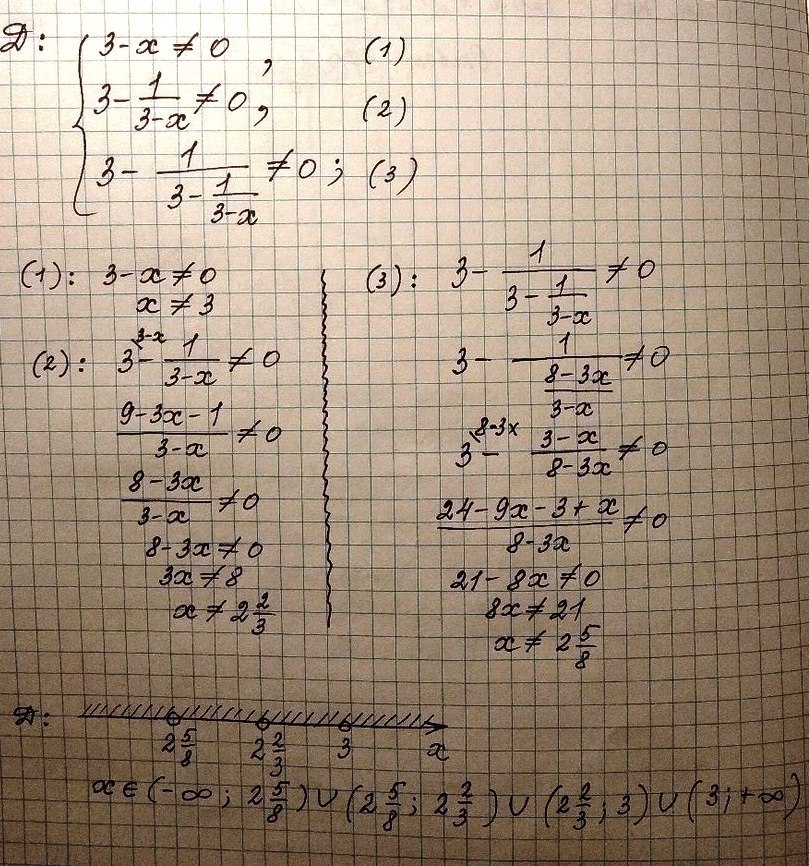 D: { 3-x ≠ 0 , (1)
3 - 1/(3-x) ≠ 0, (2)
3 - 1/(3 - 1/(3-x)) ≠ 0 ; (3)
(1): 3-x ≠ 0
x ≠ 3
(2): 3^{\3-x} - 1/(3-x) ≠ 0
(9-3x-1)/(3-x) ≠ 0
(8-3x)/(3-x) ≠ 0
8-3x ≠ 0
3x ≠ 8
x ≠ 2 2/3
(3): 3 - 1/(3 - 1/(3-x)) ≠ 0
3 - 1/((8-3x)/(3-x)) ≠ 0
3^{\8-3x} - (3-x)/(8-3x) ≠ 0
(24-9x-3+x)/(8-3x) ≠ 0
21-8x ≠ 0
8x ≠ 21
x ≠ 2 5/8
D:
2 5/8 2 2/3 3 x
x ∈ (-∞; 2 5/8) ∪ (2 5/8; 2 2/3) ∪ (2 2/3; 3) ∪ (3; +∞)